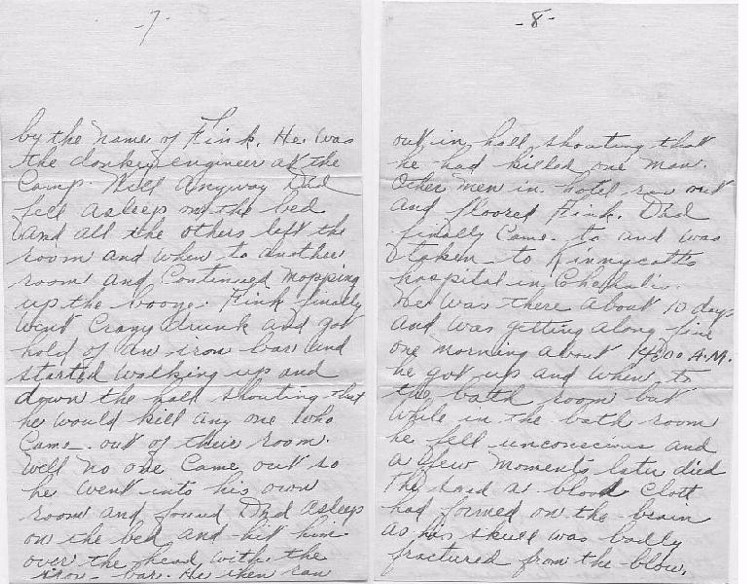 -7-
by the name of Fink. He was
the donkey engineer at the
Camp. Well Anyway Dad
fell asleep on the bed
and all the others left the
room and when to another
room and Continued mopping
up the booze. Fink finally
went Crazy drunk and got
hold of an iron bar and
started walking up and
down the hall shouting that
he would kill any one who
Came out of their room.
Well no one Came out so
he went into his own
room and found Dad Asleep
on the bed and hit him
over the head with the
iron bar. He then ran
-8-
out in hall shouting that
he had killed one man.
Other men in hotel ran out
and floored Fink. Dad
finally Came to and was
taken to
hospital in Chehalis.
He was there about 10 days
and was getting along fine
one morning about A.M.
he got up and when to
the bath room but
while in the bath room
he fell unconscious and
a few moments later died
the said a blood Clott
had formed on the brain
as his skull was badly
fractured from the blow.